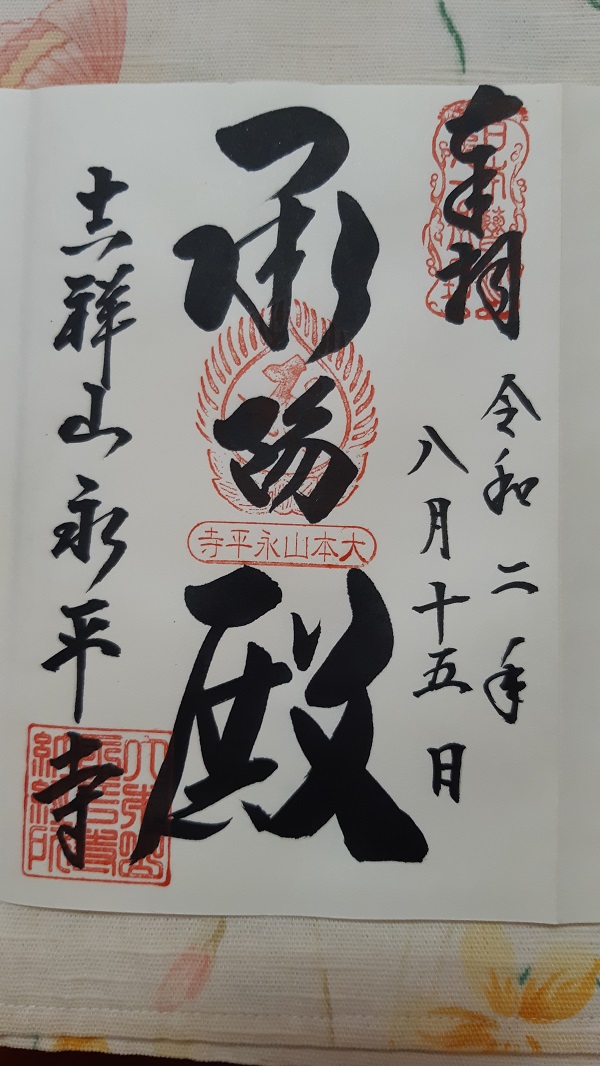 奉拝
令和二年
八月十五日
承陽殿
大本山永平寺
吉祥山永平寺